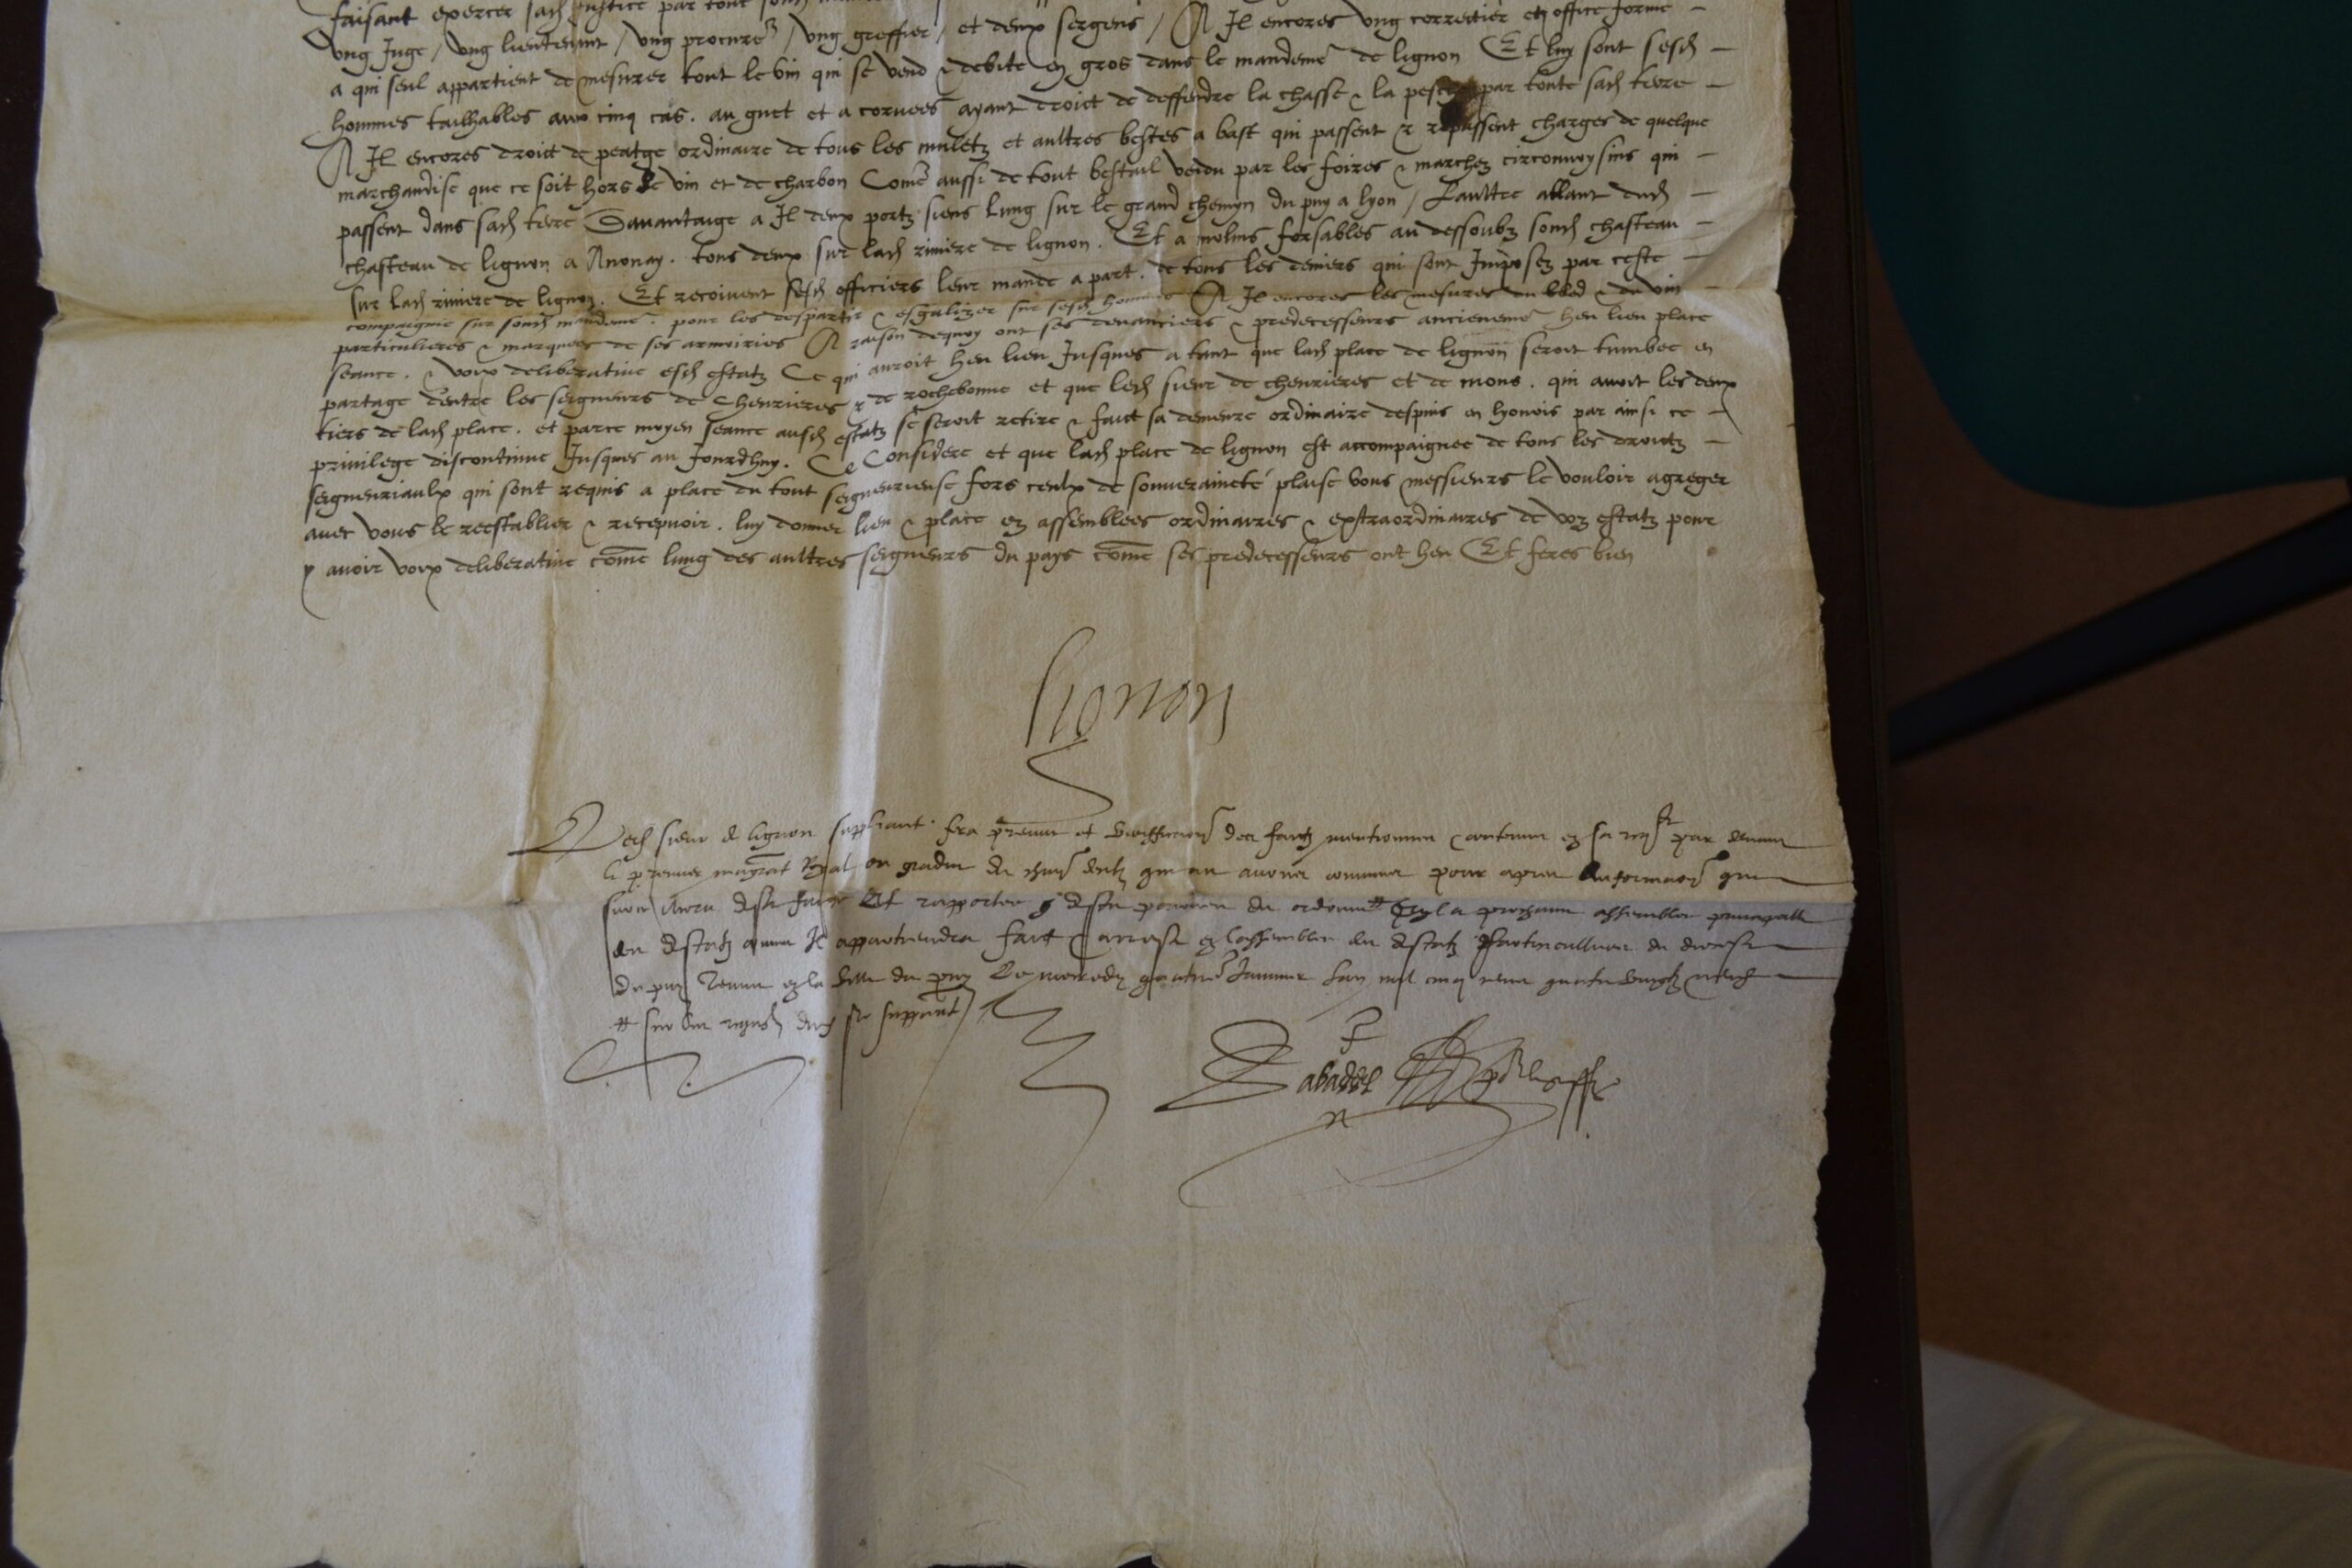 faisant exercer sad justice par tout
ung Juge / ung lieutenant / ung procureur / ung greffier / et deux sergens / A Il encores ung corretier en office forme
a qui seul appartient de mesurer tout le vin qui se vend & debite en gros dans le mandeme de lignon Et luy sont sesd
hommes tailhables aux cinq cas. au guet et a corvees ayant droict de deffendre la chasse & la pesche par toute sad terre
A Il encores droict de peatge ordinaire de tous les muletz et aultres bestes a bast qui passent & repassent charges de quelque
marchandise que ce soit hors de vin et de charbon Come aussi de tout bestail vendu par les foires & marchez circonvoysins qui
passent dans sad terre Davantaige a Il deux portz siens lung sur le grand chemyn du puy a lyon / Laultre allant dud
chasteau de lignon a Anonay. tous deux sur lad riviere de lignon. Et a molins fersables au dessoubz sond chasteau
sur lad riviere de lignon. Et recoivent sesd officiers leur mande a part. de tous les deniers qui sont Imposez par ceste
compaignie sur sond mandeme. pour les despartir & esgalizer sur sesd hommes A Il encores les mesures du bled & du vin
particulieres & marquees de ses armoiries A raison dequoy ont ses devanciers & predecesseurs ancieneme heu lieu place
seance. & voix deliberative esd estatz Ce qui auroit heu lieu Jusques a tant que lad place de lignon seroit tumbee en
partage d'entre les seigneurs de Chevrieres & de rochebonne et que led sieur de chevrieres et de mons. qui avoit les deux
tiers de lad place. et parce moyen seance ausd estatz se seroit retire & faict sa demeure ordinaire despuis en lyonois par ainsi ce
privilege discontinue Jusques au Jourdhuy. Ce Considere et que lad place de lignon est accompaignee de tous les droictz
seigneuriaulx qui sont requis a place du tout seigneurieuse fors ceulx de souveraincté plaise vous messieurs le vouloir agreger
avec vous le reestablier & recepvoir. luy donner lieu & place ez assemblees ordinaires & extraordinaires de voz estatz pour
y avoir voix deliberative come lung des aultres seigneurs du pays come ses predecesseurs ont heu Et feres bien
Lignon
Led sieur de lignon suppliant. fera preuve et veriffication des faictz mentionnes & contenus en sa reqte par devant
le premier magrat Royal ou gradue
Et rapporter
des estatz comme Il appartiendra faict & arreste en lassemblee des estatz particulliers du diocese
du puy Tenue en la ville du puy Le mercredy Janvier Lan mil cinq cens quatre vingtz
# sur les reqs dud sr suppliant
Dabadel